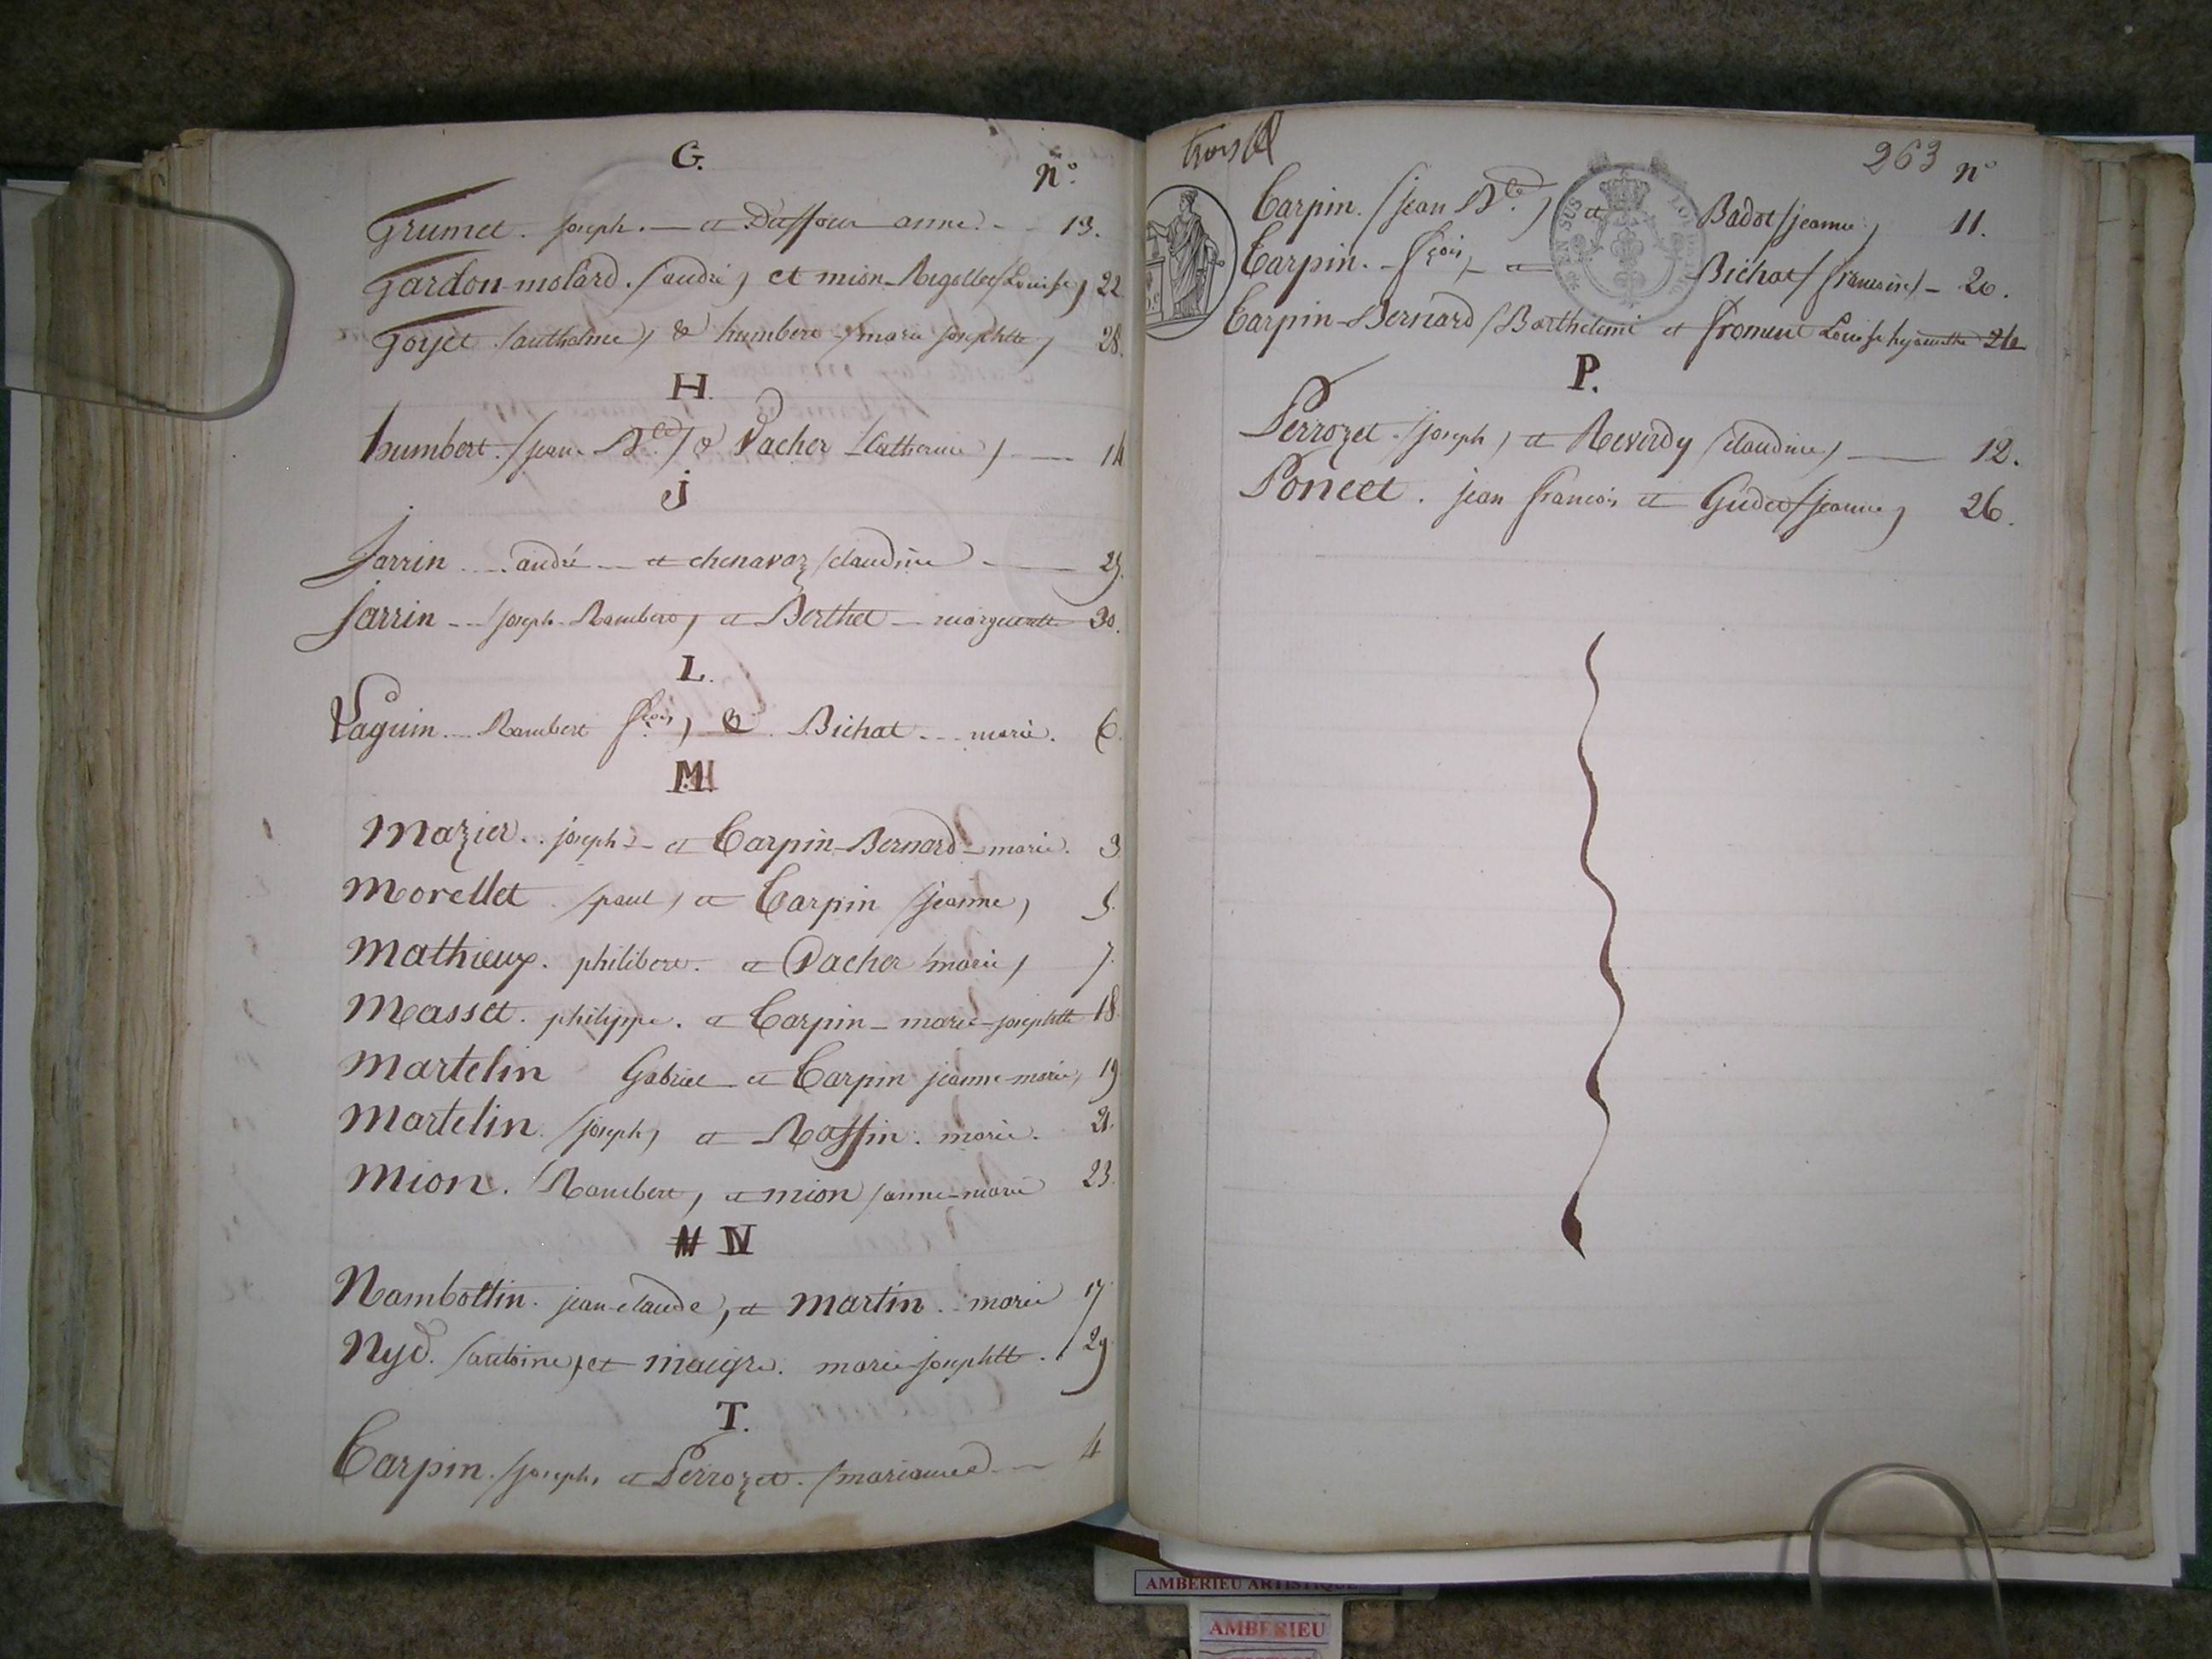 G.
n°.
Grumet. joseph. — et Duffour anne. - - 13.
Gardon-molard. (andré) et mion-Rigollet (Louise) 22
Goyet (anthelme) & humbert (marie josephtte) 28.
H.
humbert. (jean Bte) & Vacher (Catherine) — 14
j
Jarrin - - andré — et chenavaz (claudine) — 25.
Jarrin - - (joseph-Rambert) et Berthet — margueritte 30.
L.
Laguin. Rambert fçois) & Bichat - - marie. 6.
M
Mazier. joseph - et Tarpin-Bernard - marie. 3
Morellet (paul) et Tarpin (jeanne) 5.
Mathieux. philibert. et Vacher (marie) 7.
Masset. philippe. et Tarpin - marie-josephtte 18.
Martelin Gabriel et Tarpin jeanne-marie) 19
Martelin (joseph) et Raffin. marie. 21.
Mion. (Rambert) et mion (anne-marie 23.
N
Nambottin. jean-claude) et Martin. marie 17
Nyd. (antoine) et maigre. marie-josephtte. 29
T.
Tarpin. (joseph) et Perrozet. (marianne) — 4
263 n°
Tarpin. (jean Bte) et Badot (jeanne) 11.
Tarpin. - fçois) - et Bichat (francoise) - 20.
Tarpin-Bernard (Barthelemi et froment Louise hyacinthe
P.
Perrozet. (joseph) et Reverdy (claudine) — 12.
Poncet. jean francois et Gudet (jeanne) 26.
EN SUS
AMBERIEU ARTISTIQUE
AMBERIEU